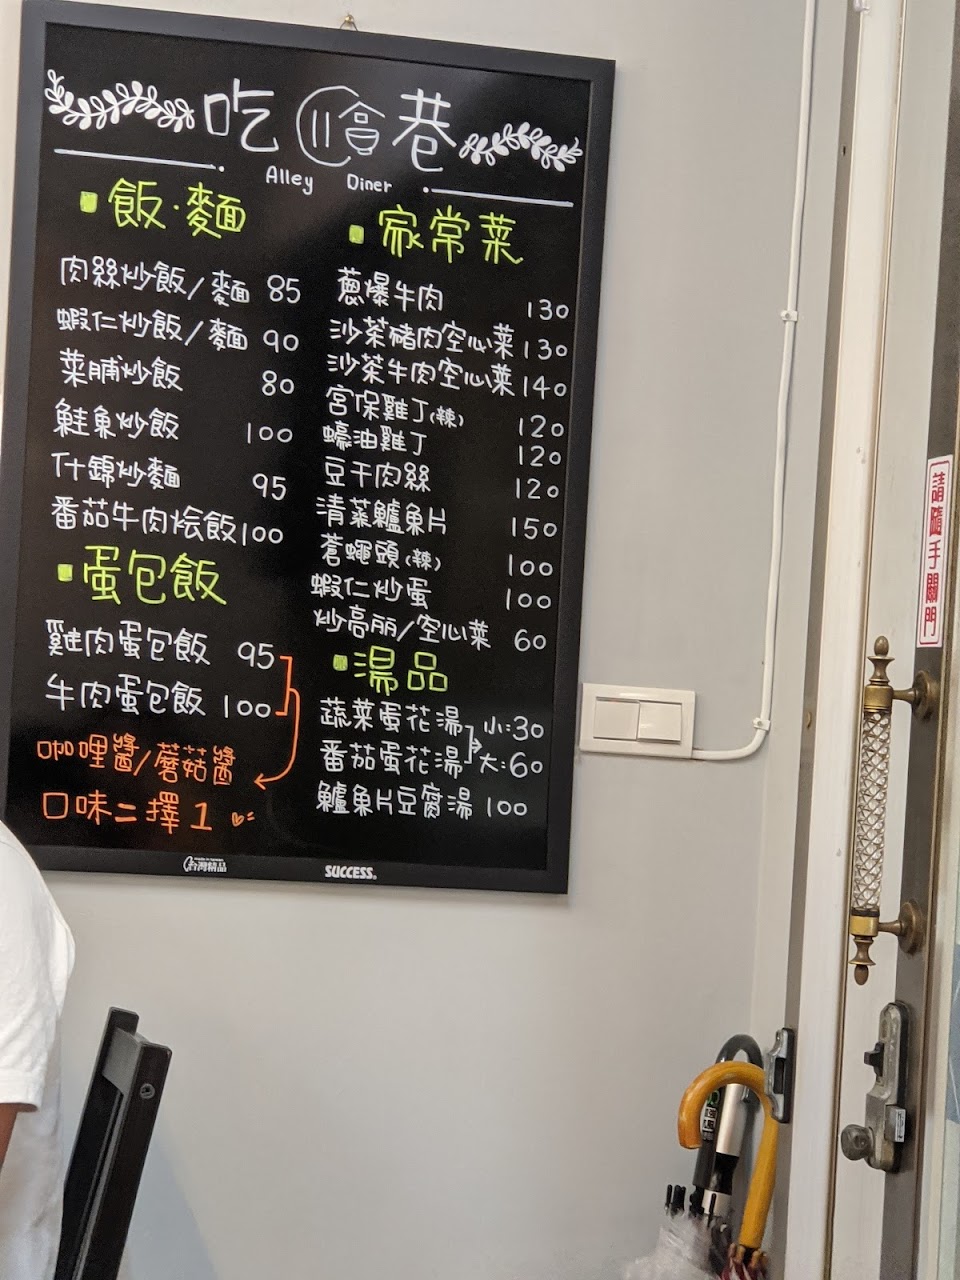 吃 巷
Alley Diner
飯·麵
肉絲炒飯/麵 85
蝦仁炒飯/麵 90
菜脯炒飯 80
鮭魚炒飯 100
什錦炒麵 95
番茄牛肉燴飯 100
蛋包飯
雞肉蛋包飯 95
牛肉蛋包飯 100
咖哩醬/蘑菇醬
口味二擇1
家常菜
蔥爆牛肉 130
沙茶豬肉空心菜 130
沙茶牛肉空心菜 140
宮保雞丁(辣) 120
蠔油雞丁 120
豆干肉絲 120
清蒸鱸魚片 150
蒼蠅頭(辣) 100
蝦仁炒蛋 100
炒高丽/空心菜 60
湯品
蔬菜蛋花湯 小:30
番茄蛋花湯 大:60
鱸魚片豆腐湯 100
台灣精品
SUCCESS
請隨手關門